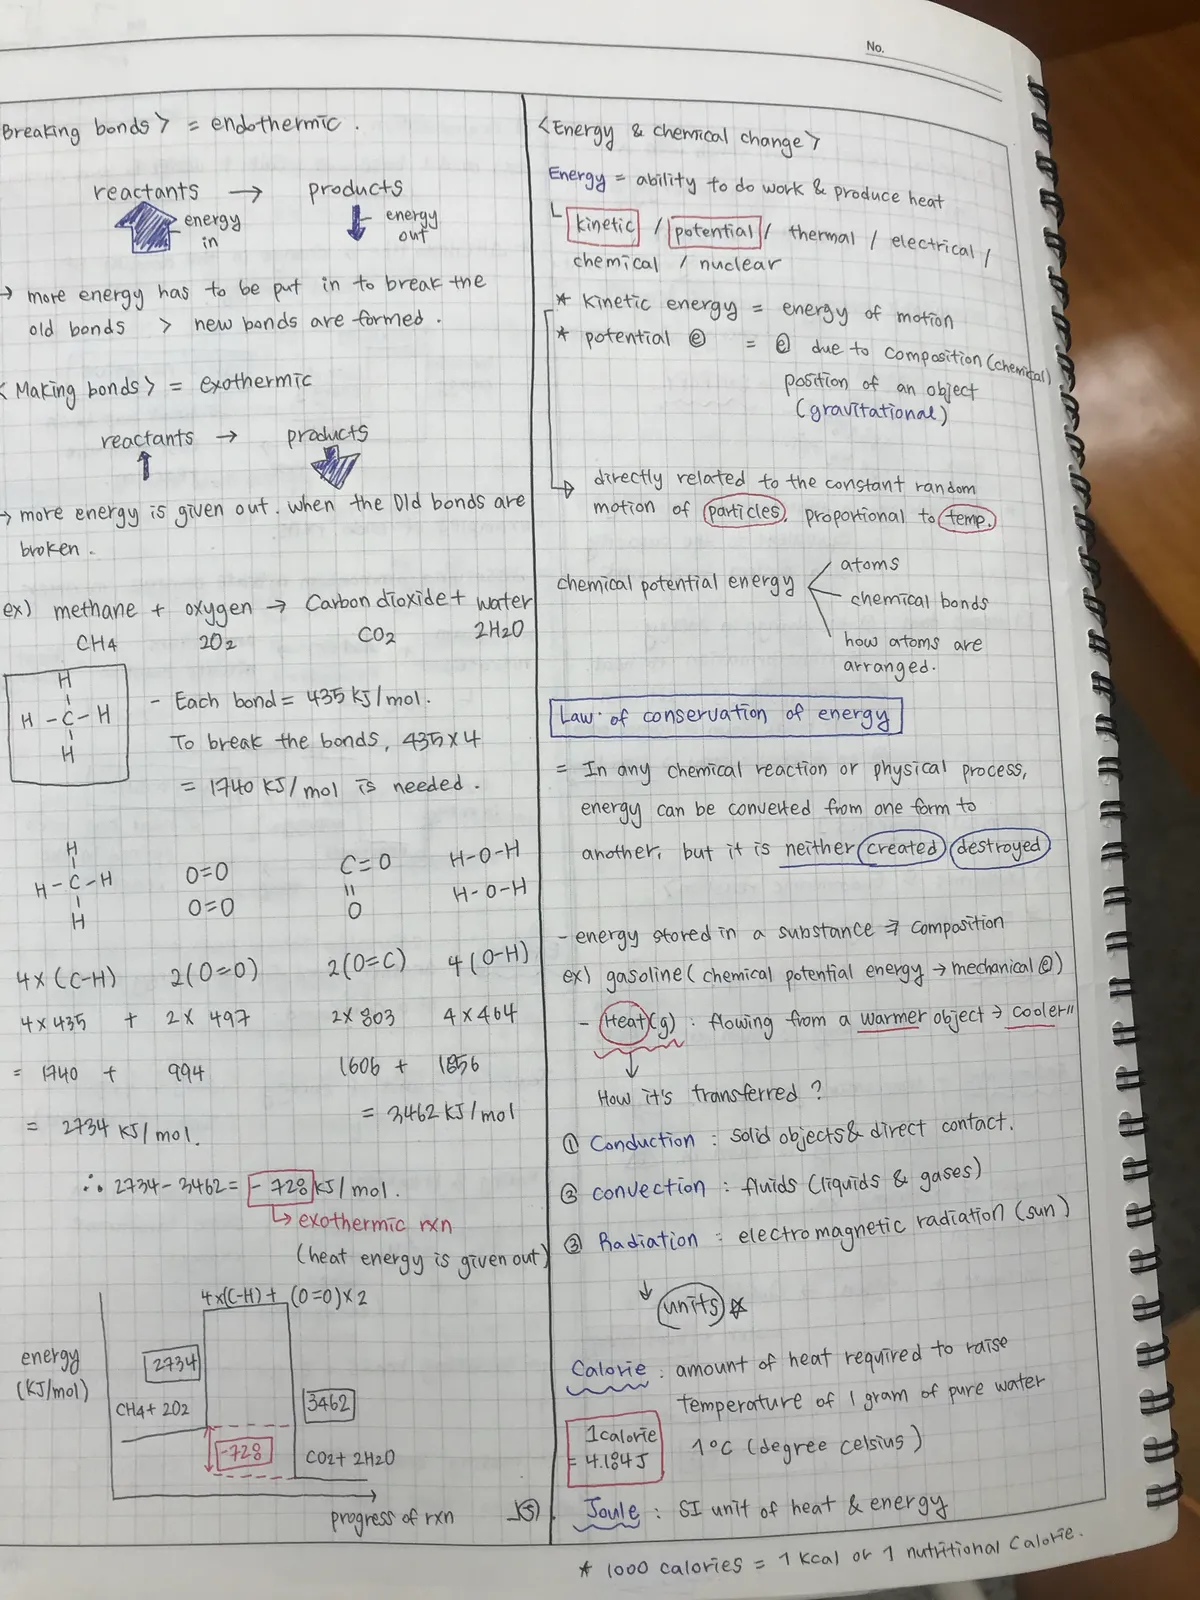 No.
Breaking bonds> = endothermic.
reactants → products
energy in
energy out
→ more energy has to be put in to break the
old bonds > new bonds are formed.
<Making bonds> = exothermic
reactants → products
→ more energy is given out. when the Old bonds are
broken.
ex) methane + oxygen → Carbon dioxide + water
CH4 2O2 CO2 2H2O
H
H-C-H
H
- Each bond = 435 KJ/mol.
To break the bonds, 435×4
= 1740 KJ/mol is needed.
H
H-C-H
H
O=O
O=O
C=O
=
O
H-O-H
H-O-H
4×(C-H) 2(O=O) 2(O=C) 4(O-H)
4×435 + 2×497 2×803 4×464
= 1740 + 994 1606 + 1856
= 2734 KJ/mol. = 3462 KJ/mol
∴ 2734-3462= -728 KJ/mol.
↳ exothermic rxn
(heat energy is given out)
4×(C-H)+ (O=O)×2
energy
(KJ/mol)
2734
CH4+ 2O2
3462
-728
CO2+ 2H2O
progress of rxn
<Energy & chemical change>
Energy = ability to do work & produce heat
└ kinetic / potential / thermal / electrical /
chemical / nuclear
* kinetic energy = energy of motion
* potential ⓔ = ⓔ due to composition (chemical)
position of an object
(gravitational)
directly related to the constant random
motion of particles, proportional to temp.
chemical potential energy
atoms
chemical bonds
how atoms are
arranged.
Law of conservation of energy
= In any chemical reaction or physical process,
energy can be converted from one form to
another, but it is neither created destroyed
- energy stored in a substance composition
ex) gasoline (chemical potential energy → mechanical ⓔ)
- Heat(q) : flowing from a warmer object → cooler "
↓
How it's transferred ?
① Conduction : solid objects & direct contact.
② convection : fluids (liquids & gases)
③ Radiation : electromagnetic radiation (sun)
↓ units ☆
Calorie : amount of heat required to raise
temperature of 1 gram of pure water
1°C (degree celsius)
1 calorie
= 4.184 J
(J) Joule : SI unit of heat & energy
* 1000 calories = 1 Kcal or 1 nutritional Calorie.